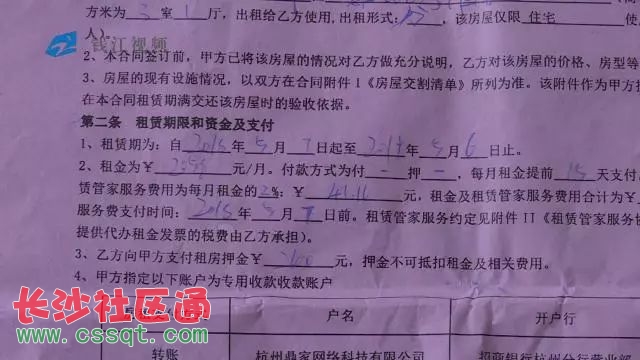 方米为 3 室 1 厅，出租给乙方使用，出租形式： ，该房屋仅限 住宅
人）。
钱江视频
2、本合同签订前，甲方已将该房屋的情况对乙方做充分说明，乙方对该房屋的价格、房型等
3、房屋的现有设施情况，以双方在合同附件 I《房屋交割清单》所列为准。该附件作为甲方
在本合同租赁期满交还该房屋时的验收依据。
第二条 租赁期限和资金及支付
1、租赁期为：自 2018 年 5 月 7 日起至 年 5 月 6 日止。
2、租金为￥ 元/月。付款方式为付 一 押 一 ，每月租金提前 15 天支付
赁管家服务费用为每月租金的 2%：￥ 41.16 元，租金及租赁管家服务费用合计为￥
服务费支付时间： 2018 年 5 月 7 日前。租赁管家服务约定见附件 II《租赁管家服务
提供代办租金发票的税费由乙方承担）。
3、乙方向甲方支付租房押金￥ 元，押金不可抵扣租金及相关费用。
4、甲方指定以下账户为专用收款收款账户
户名 开户行
转账 杭州鼎家网络科技有限公司 招商银行杭州分行营业部
长沙社区通
www.cssqt.com